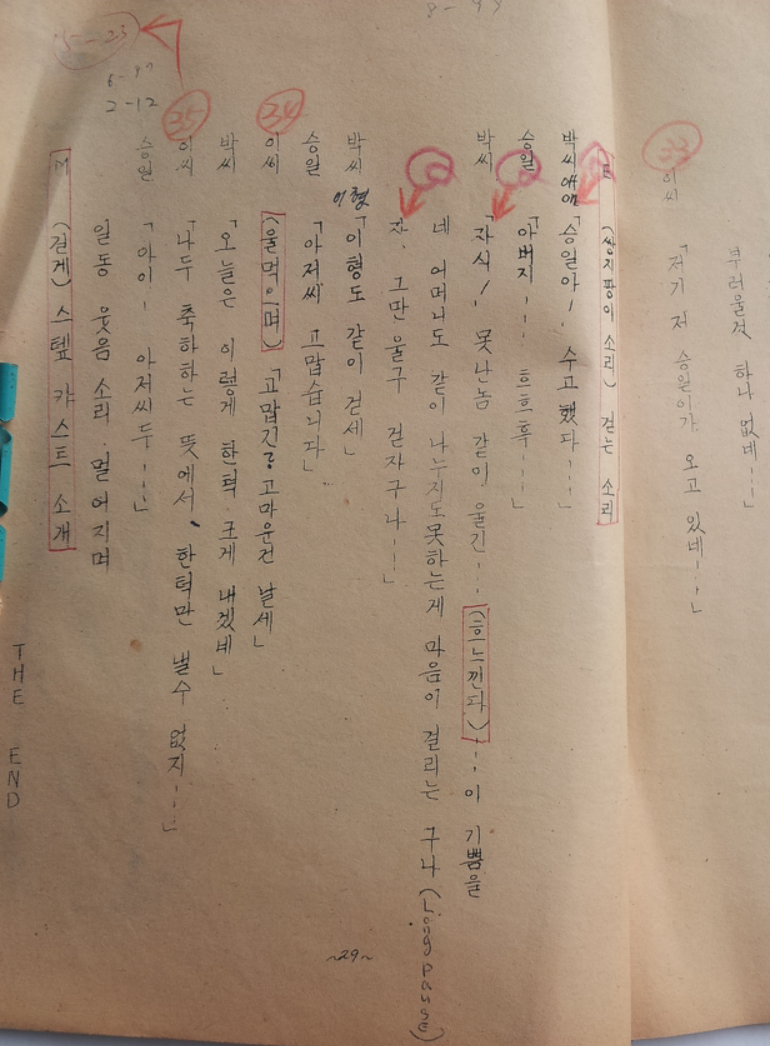 부러울것 하나 없네---」
33
이씨 「저기 저 승일이가 오고 있네---」
E (쌍지팡이 소리) 걷는 소리
박씨 「승일아/. 수고했다---」
승일 「아버지--- 흐흐흑---」
박씨 「자식/. 못난놈 같이 울긴--- (흐느낀다)--- 이 기쁨을
네 어머니도 같이 나누지도못하는게 마음이 걸리는 구나 (Long pause)
자. 그만 울구 걷자구나---」
박씨 이형 「이형도 같이 걷세」
승일 「아저씨 고맙습니다」
34
이씨 (울먹이며) 「고맙긴? 고마운건 날세」
박씨 「오늘은 이렇게 한턱 크게 내겠네」
35
이씨 「나두 축하하는 뜻에서、 한턱만 낼수 없지---」
승일 「아이- 아저씨두---」
일동 웃음 소리. 멀어지며
M (길게) 스텦 캬스트 소개
THE END
5-23
6-97
2-12
8-99
~29~